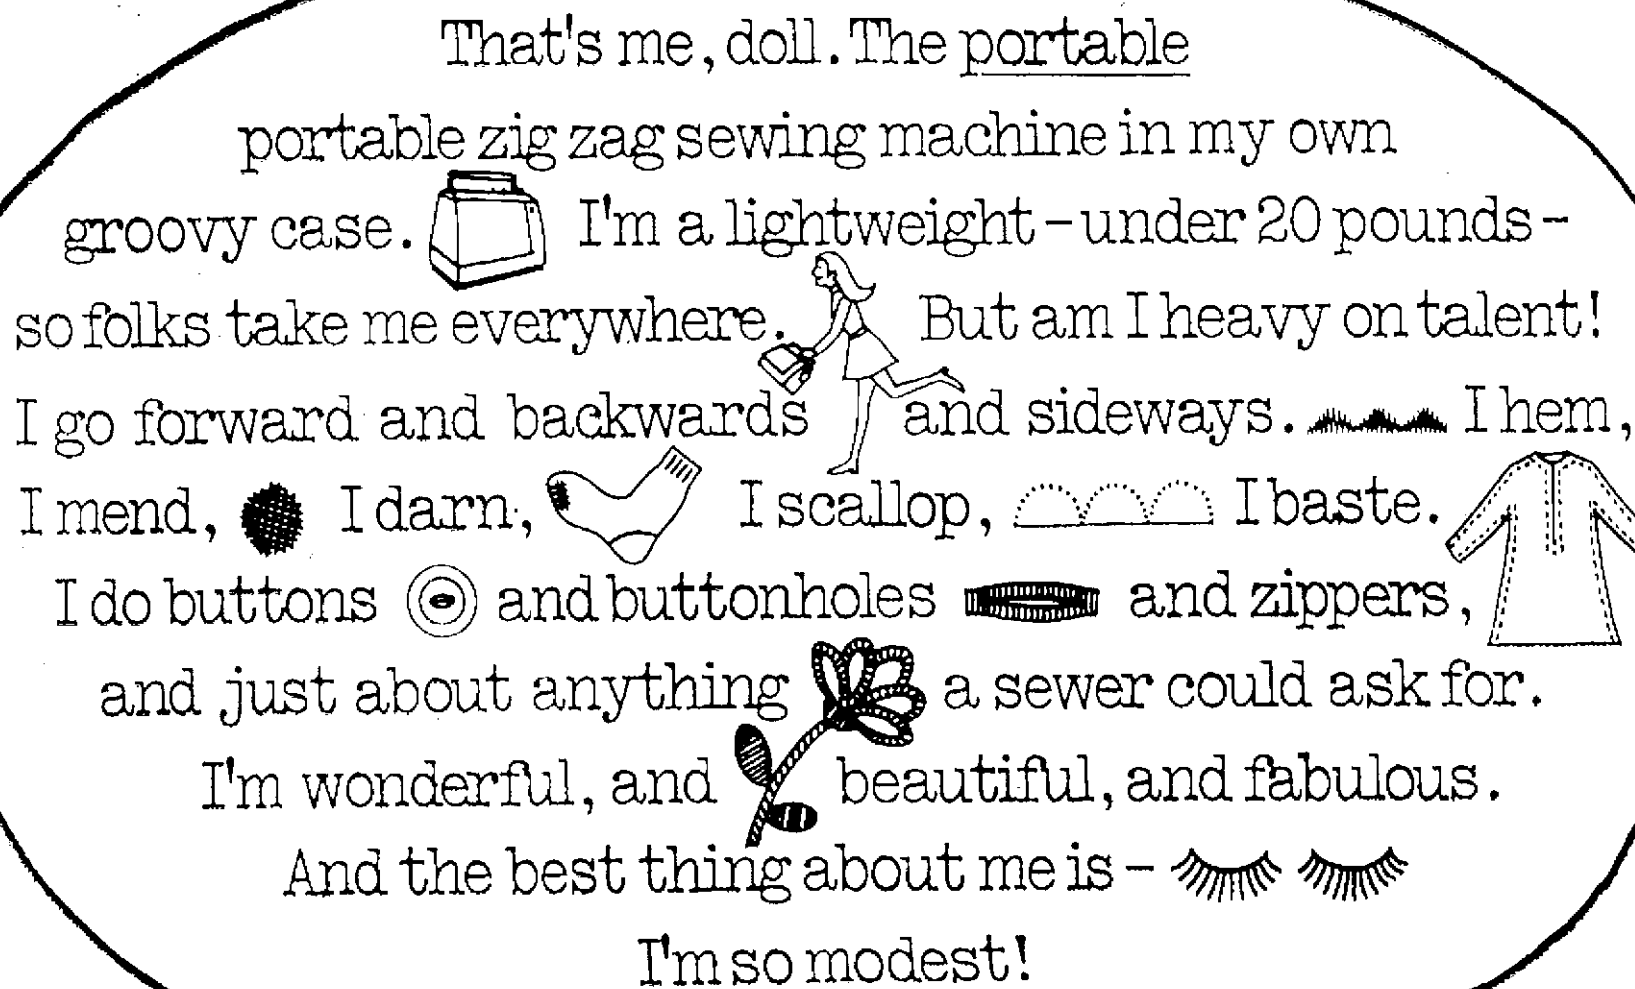 That's me, doll. The portable
portable zig zag sewing machine in my own
groovy case. I'm a lightweight - under 20 pounds -
so folks take me everywhere. But am I heavy on talent!
I go forward and backwards and sideways. I hem,
I mend, I darn, I scallop, I baste.
I do buttons and buttonholes and zippers,
and just about anything a sewer could ask for.
I'm wonderful, and beautiful, and fabulous.
And the best thing about me is -
I'm so modest!